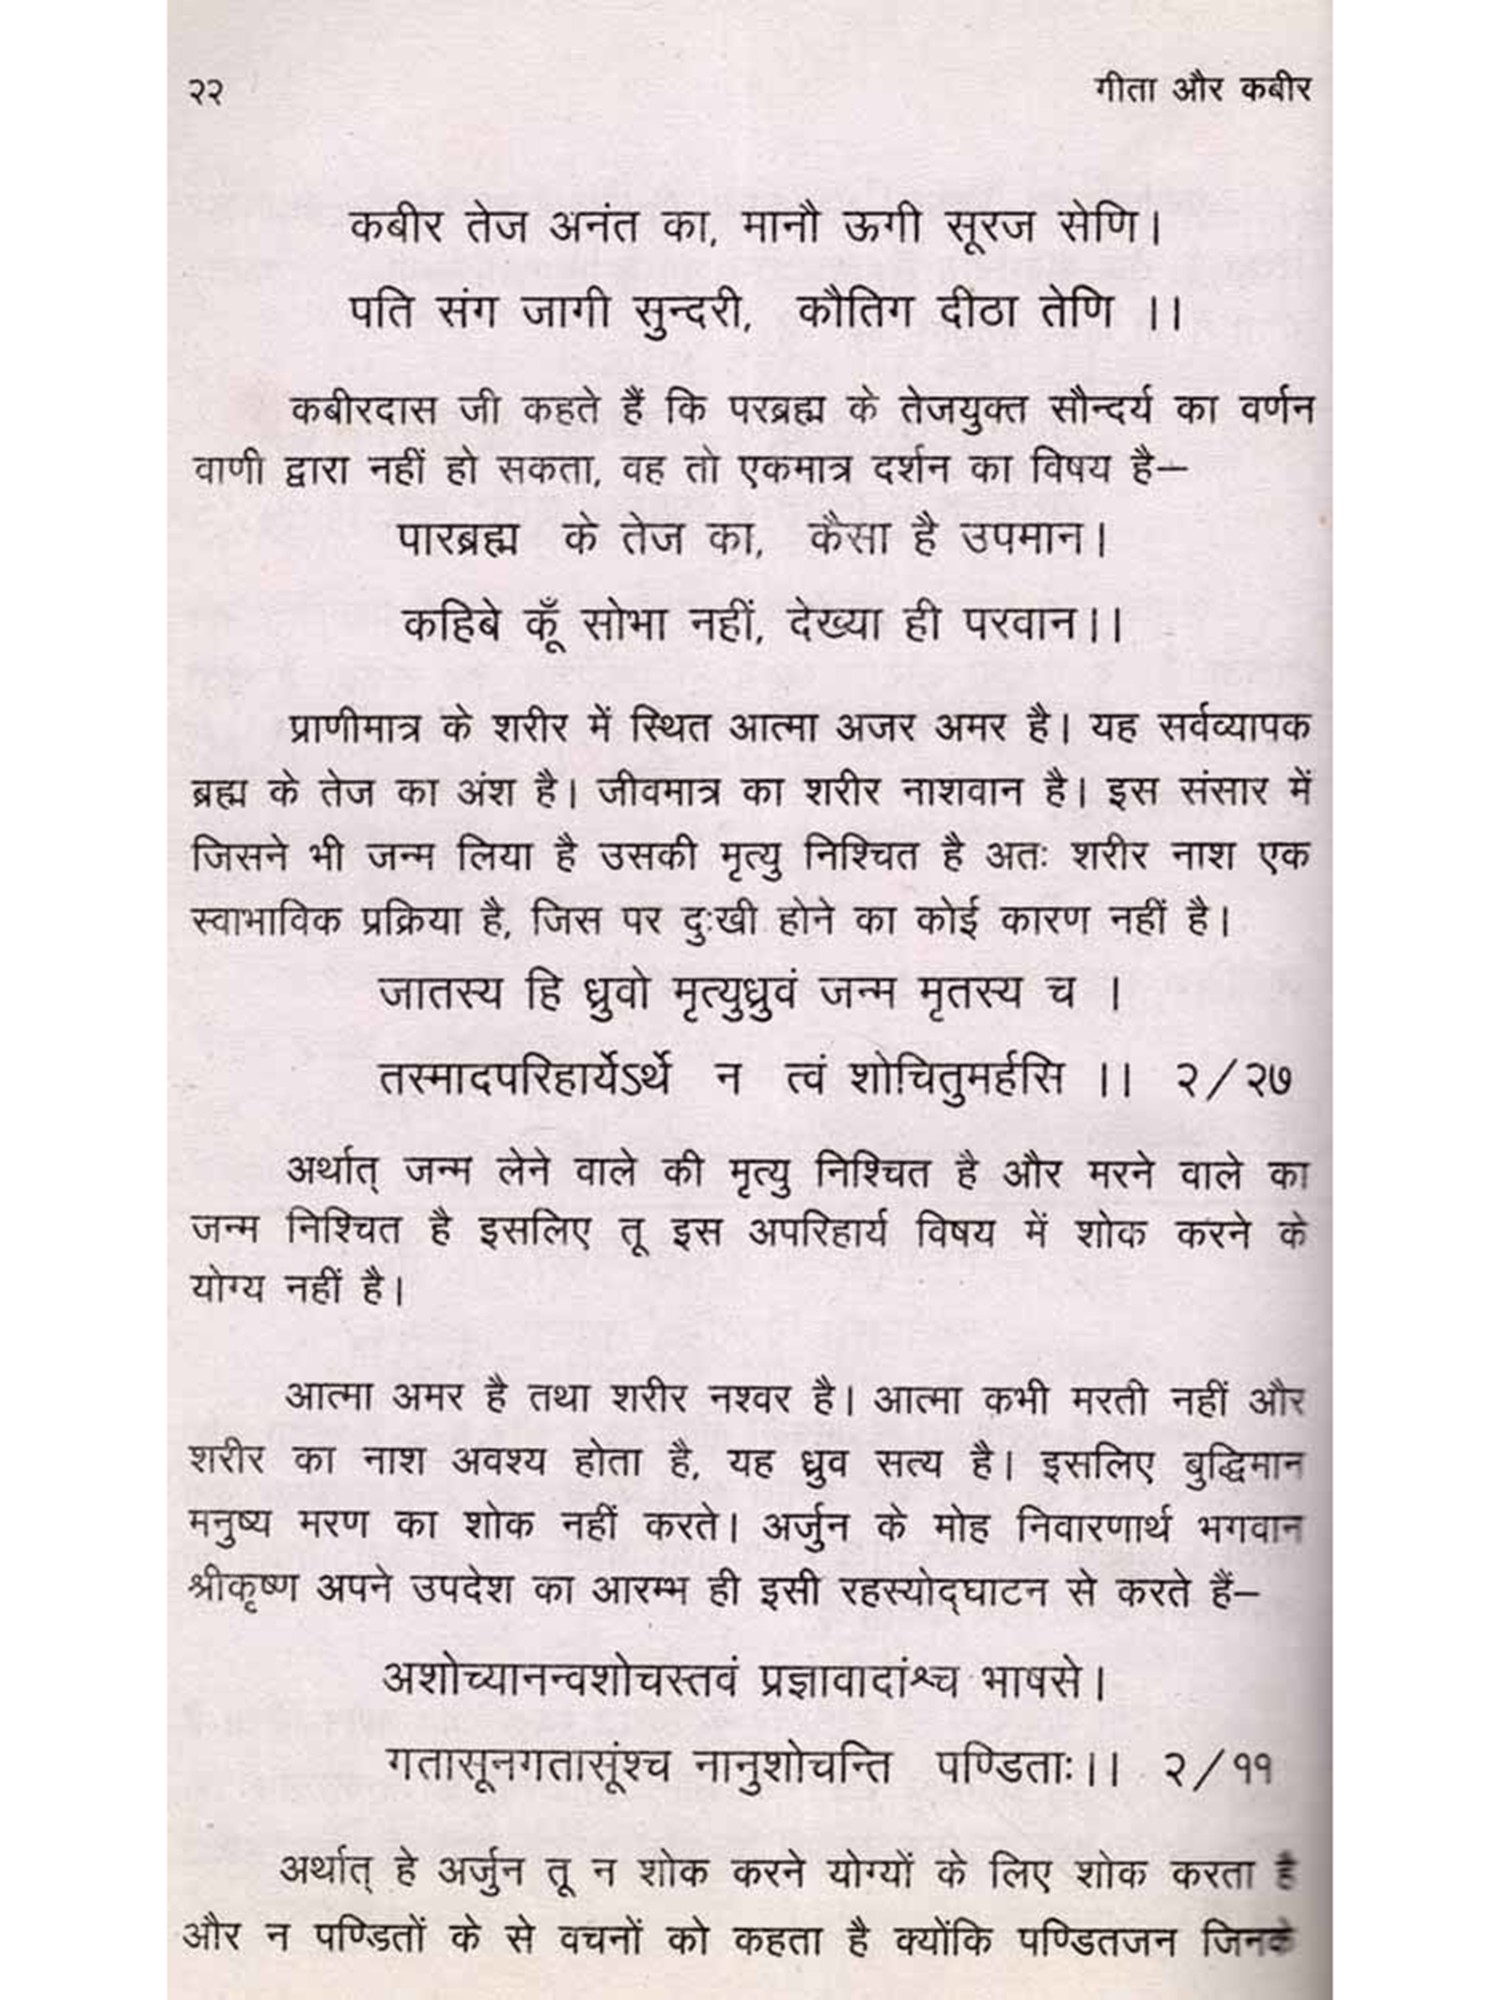 २२ गीता और कबीर
कबीर तेज अनंत का, मानौ ऊगी सूरज सेणि।
पति संग जागी सुन्दरी, कौतिग दीठा तेणि ।।
कबीरदास जी कहते हैं कि परब्रह्म के तेजयुक्त सौन्दर्य का वर्णन
वाणी द्वारा नहीं हो सकता, वह तो एकमात्र दर्शन का विषय है—
पारब्रह्म के तेज का, कैसा है उपमान।
कहिबे कूँ सोभा नहीं, देख्या ही परवान।।
प्राणीमात्र के शरीर में स्थित आत्मा अजर अमर है। यह सर्वव्यापक
ब्रह्म के तेज का अंश है। जीवमात्र का शरीर नाशवान है। इस संसार में
जिसने भी जन्म लिया है उसकी मृत्यु निश्चित है अतः शरीर नाश एक
स्वाभाविक प्रक्रिया है, जिस पर दुःखी होने का कोई कारण नहीं है।
जातस्य हि ध्रुवो मृत्युध्रुवं जन्म मृतस्य च ।
तस्मादपरिहार्येऽर्थे न त्वं शोचितुमर्हसि ।। २/२७
अर्थात् जन्म लेने वाले की मृत्यु निश्चित है और मरने वाले का
जन्म निश्चित है इसलिए तू इस अपरिहार्य विषय में शोक करने के
योग्य नहीं है।
आत्मा अमर है तथा शरीर नश्वर है। आत्मा कभी मरती नहीं और
शरीर का नाश अवश्य होता है, यह ध्रुव सत्य है। इसलिए बुद्धिमान
मनुष्य मरण का शोक नहीं करते। अर्जुन के मोह निवारणार्थ भगवान
श्रीकृष्ण अपने उपदेश का आरम्भ ही इसी रहस्योद्‌घाटन से करते हैं—
अशोच्यानन्वशोचस्तवं प्रज्ञावादांश्च भाषसे।
गतासूनगतासूंश्च नानुशोचन्ति पण्डिताः।। २/११
अर्थात् हे अर्जुन तू न शोक करने योग्यों के लिए शोक करता है
और न पण्डितों के से वचनों को कहता है क्योंकि पण्डितजन जिनके